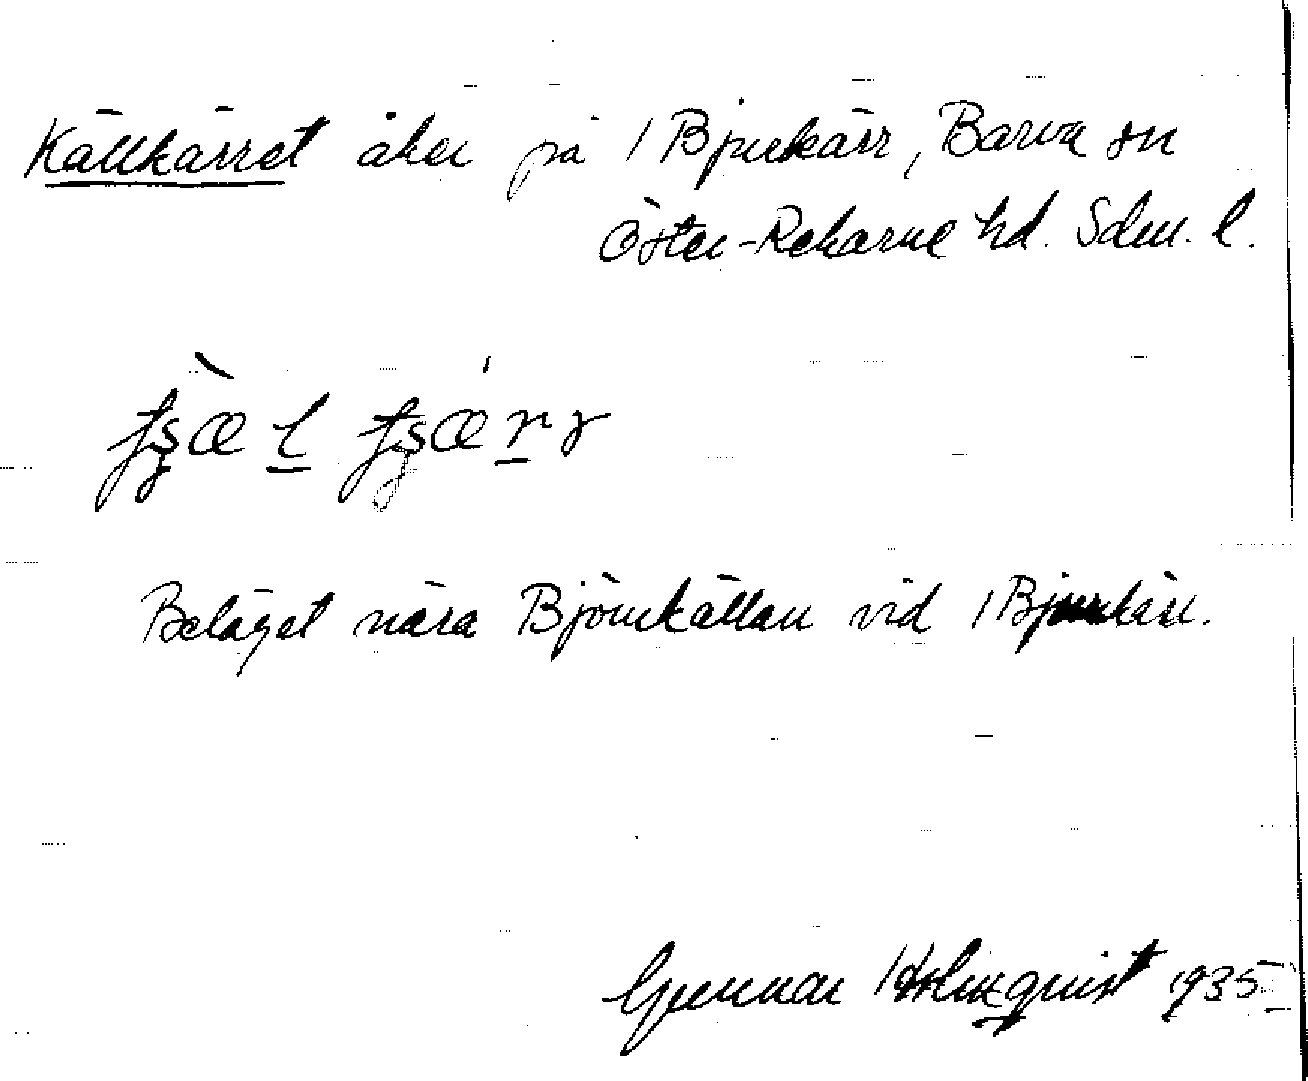 Källkärret åker på 1 Bjurkärr, Barva sn
Öster-Rekarne hd. Sdm. l.
Beläget nära Björnkällan vid 1 Bjurkärr.
Gunnar Holmquist 1935